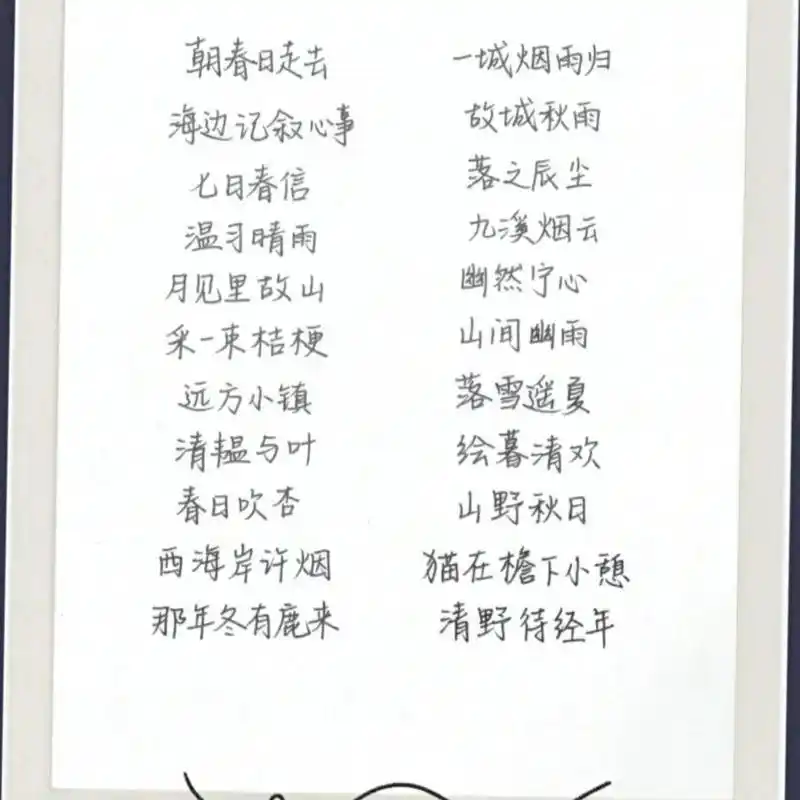 朝春日走去
海边记叙心事
七日春信
温习晴雨
月见里故山
采一束桔梗
远方小镇
清韫与叶
春日吹杏
西海岸许烟
那年冬有鹿来
一城烟雨归
故城秋雨
落之辰尘
九溪烟云
幽然宁心
山间幽雨
落雪遥夏
绘暮清欢
山野秋日
猫在檐下小憩
清野待经年